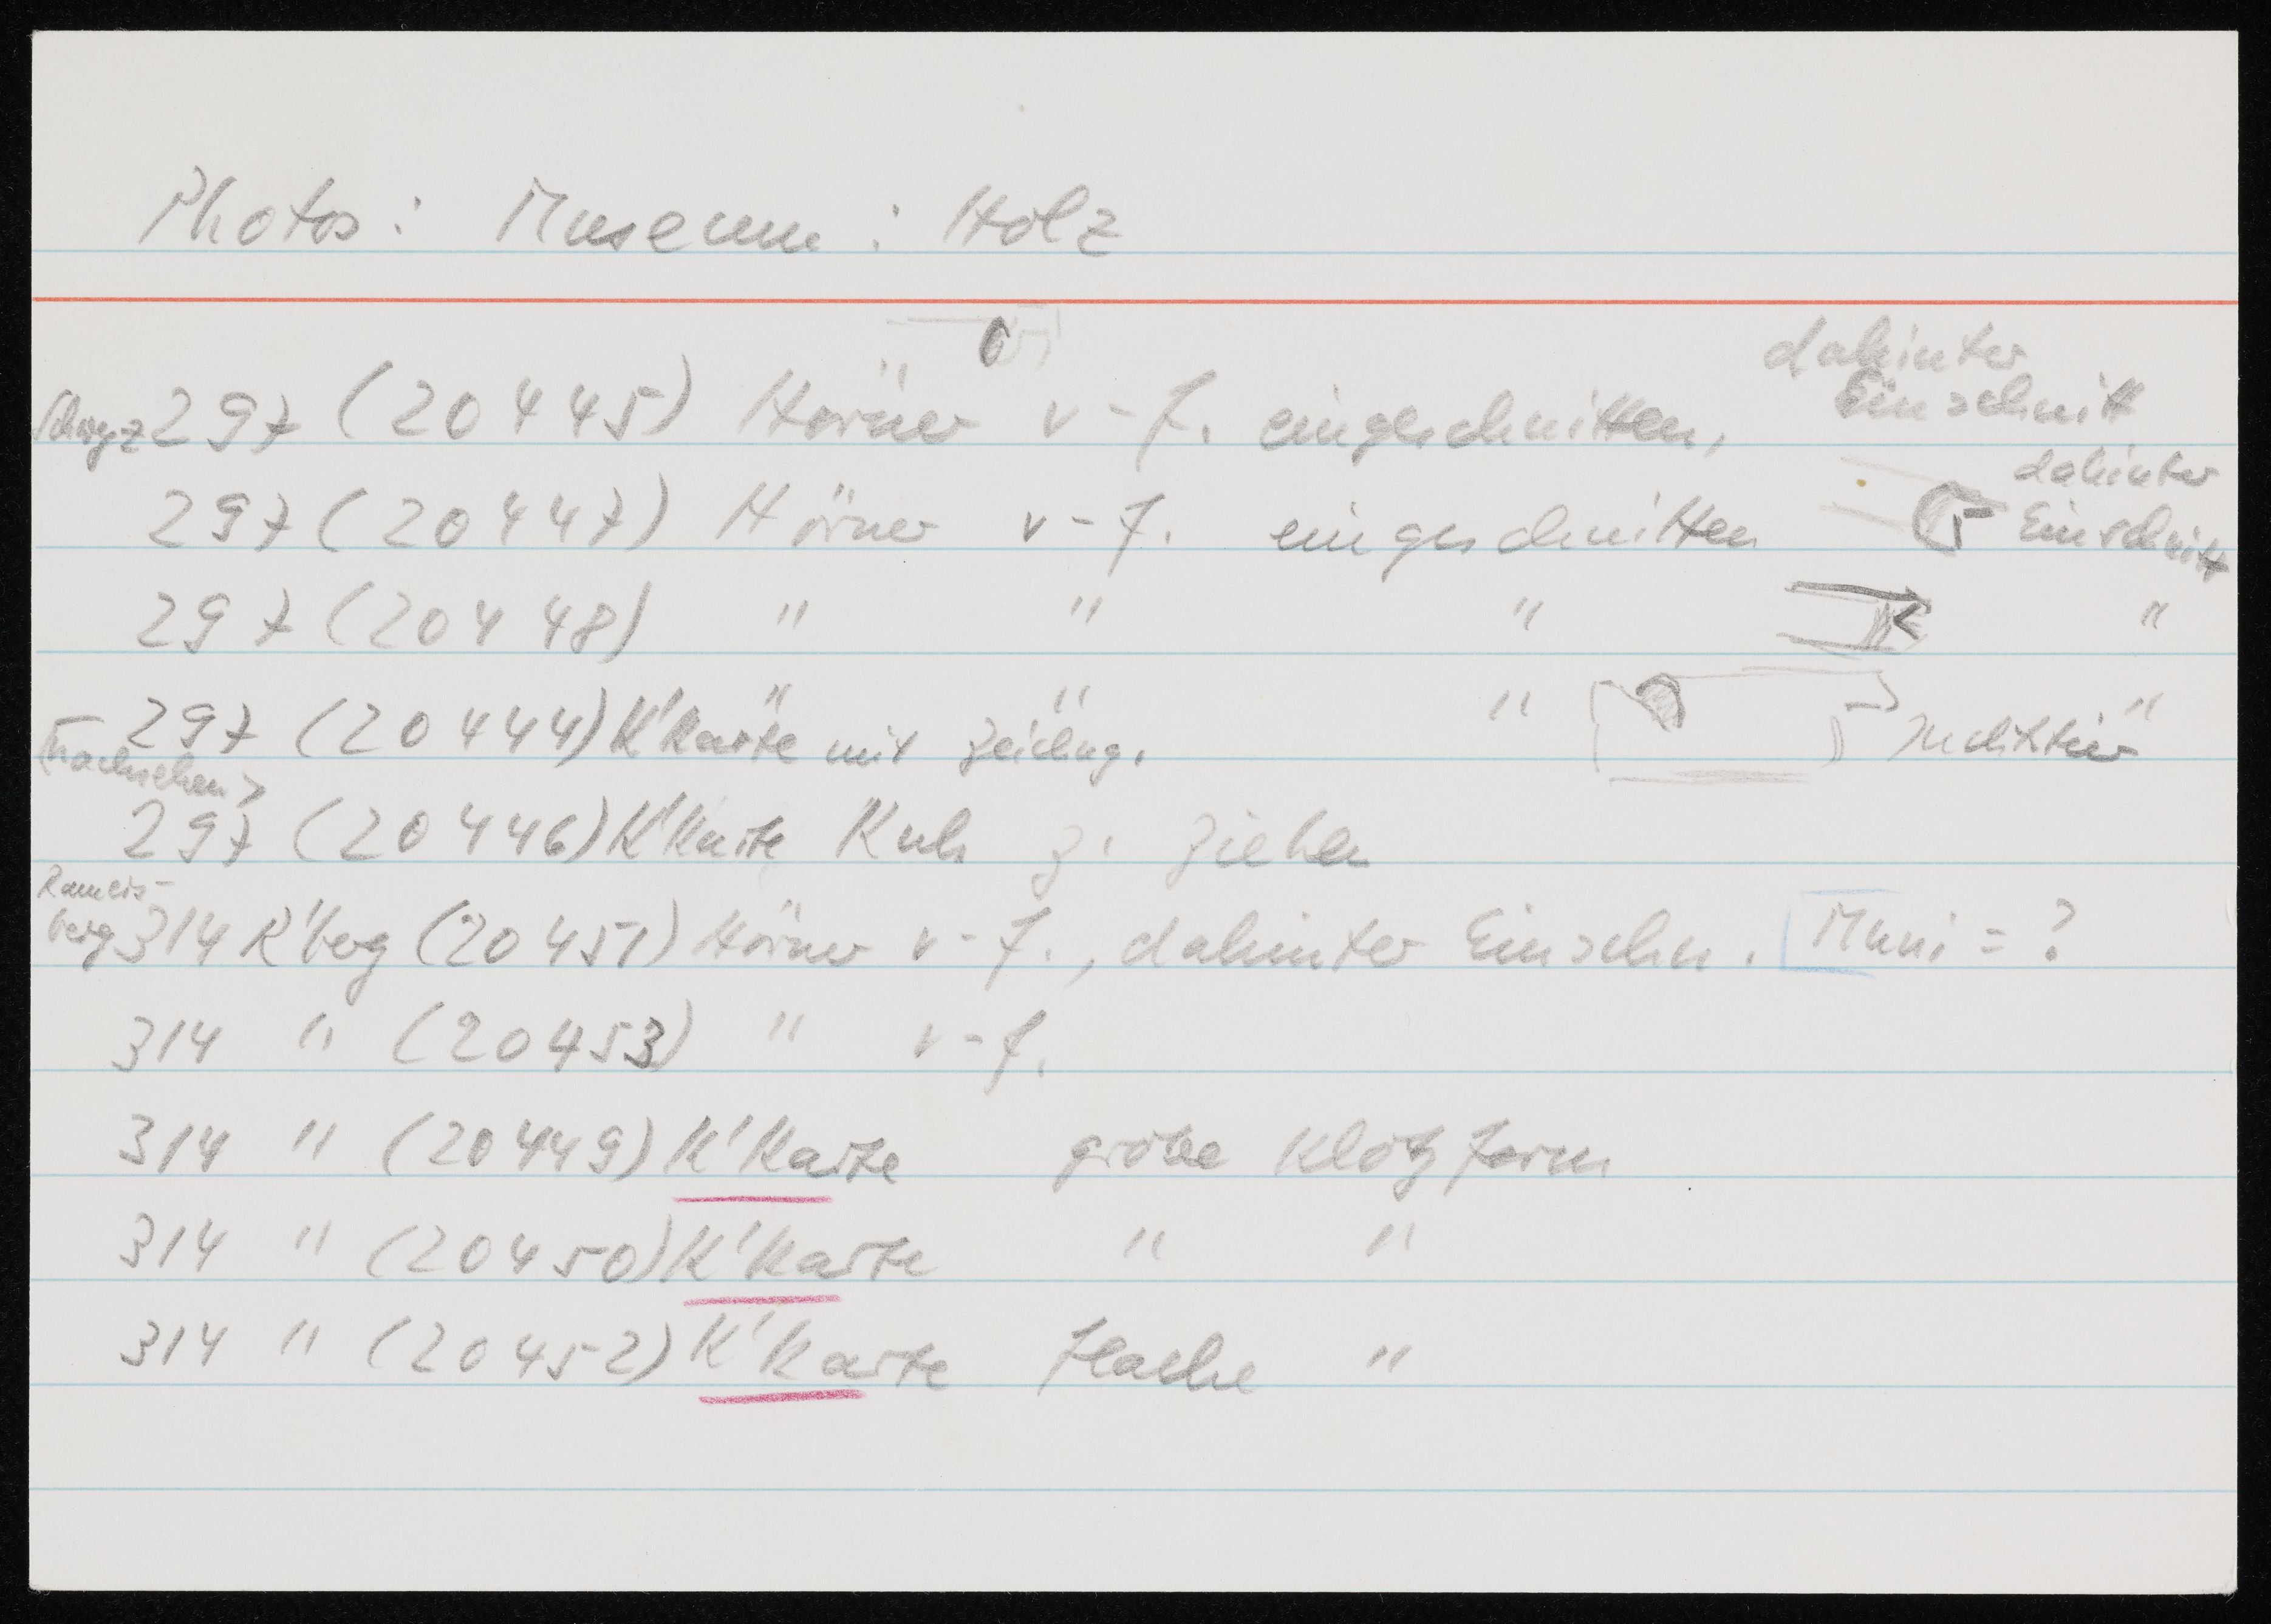 Photos: Museum: Holz
dahinter
Schwyz 297 (20445) Hörner v-f. eingeschnitten, Einschnitt
dahinter
297 (20447) Hörner v-f. eingeschnitten Einschnitt
297 (20448) " " " "
" " " "
297 (20444) K'Karte mit Zeichng. Zuchtstier
(nachsehen)
297 (20446) K'Karte Kuh z. ziehen
Rameis-
berg 314 R'berg (20451) Hörner v-f., dahinter Einschn. Muni = ?
314 " (20453) " v-f.
314 " (20449) K'Karte grobe Klotzform
314 " (20450) K'Karte " "
314 " (20452) K'Karte flache "